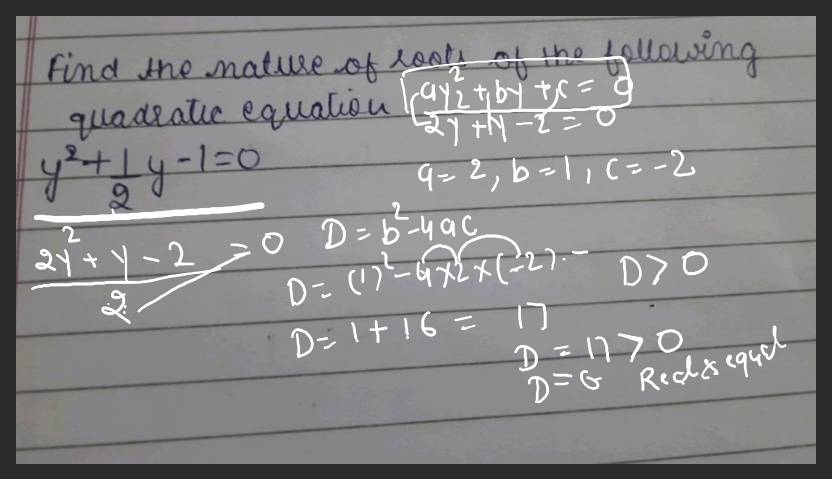 Find the nature of roots of the following
quadratic equation
ay²+by+c=0
2y²+1y-2=0
y²+1/2 y-1=0
a=2, b=1, c=-2
(2y²+y-2)/2 = 0
D=b²-4ac
D=(1)²-4×2×(-2)
D>0
D=1+16 = 17
D=17>0
D=0 Real & equal